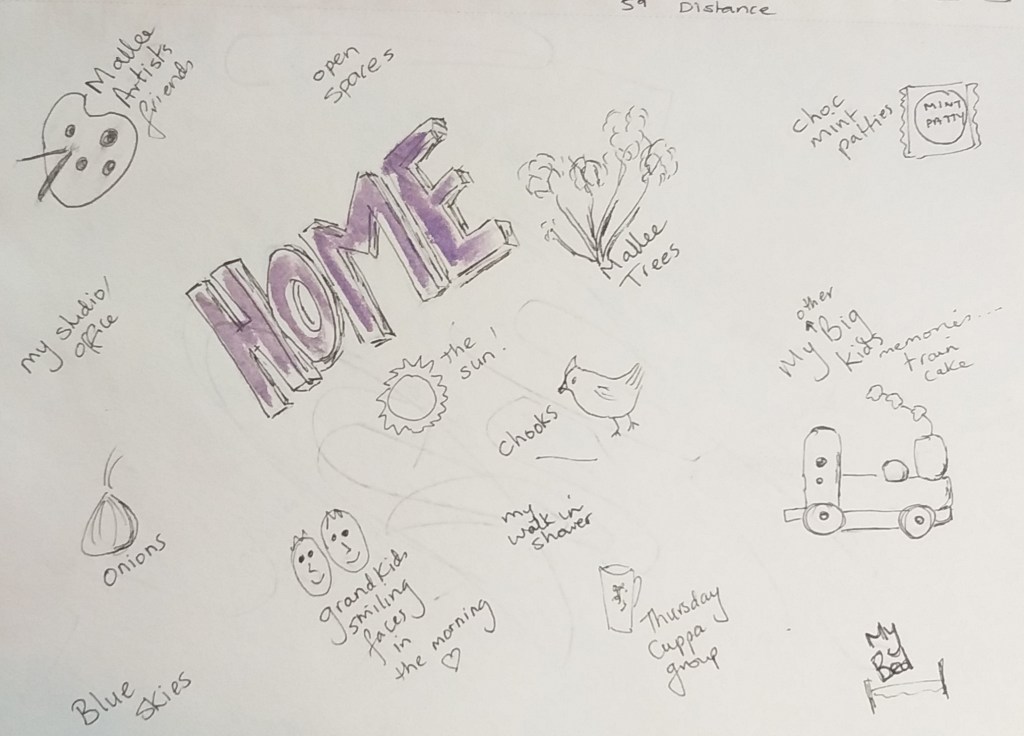 Distance
Mallee
Artists
friends
open
spaces
choc
mint
patties
MINT
PATTY
HOME
Mallee
Trees
my studio/
office
the
sun!
chooks
other
My Big
kids
memories....
train
cake
onions
grandkids
smiling
faces
in
the morning
my
walk in
shower
Thursday
Cuppa
group
My
Bed
Blue
skies